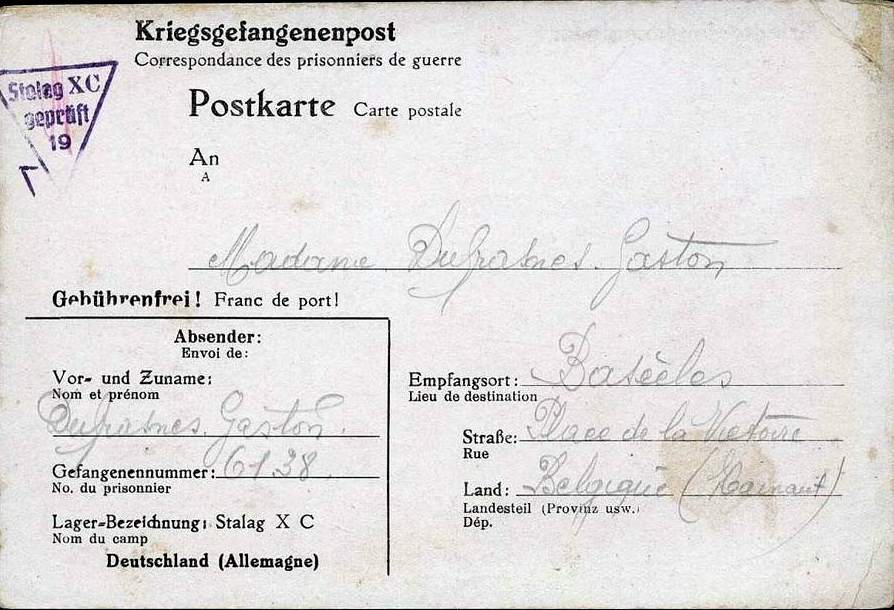 Kriegsgefangenenpost
Correspondance des prisonniers de guerre
Stalag XC
geprüft
19
Postkarte Carte postale
An
A
Madame Dufrasnes Gaston
Gebührenfrei! Franc de port!
Absender:
Envoi de:
Vor- und Zuname:
Nom et prénom
Dufrasnes Gaston.
Gefangenennummer: 6138
No. du prisonnier
Lager-Bezeichnung: Stalag X C
Nom du camp
Deutschland (Allemagne)
Empfangsort: Basècles
Lieu de destination
Straße: Place de la Victoire
Rue
Land: Belgique (Hainaut)
Landesteil (Provinz usw.)
Dép.